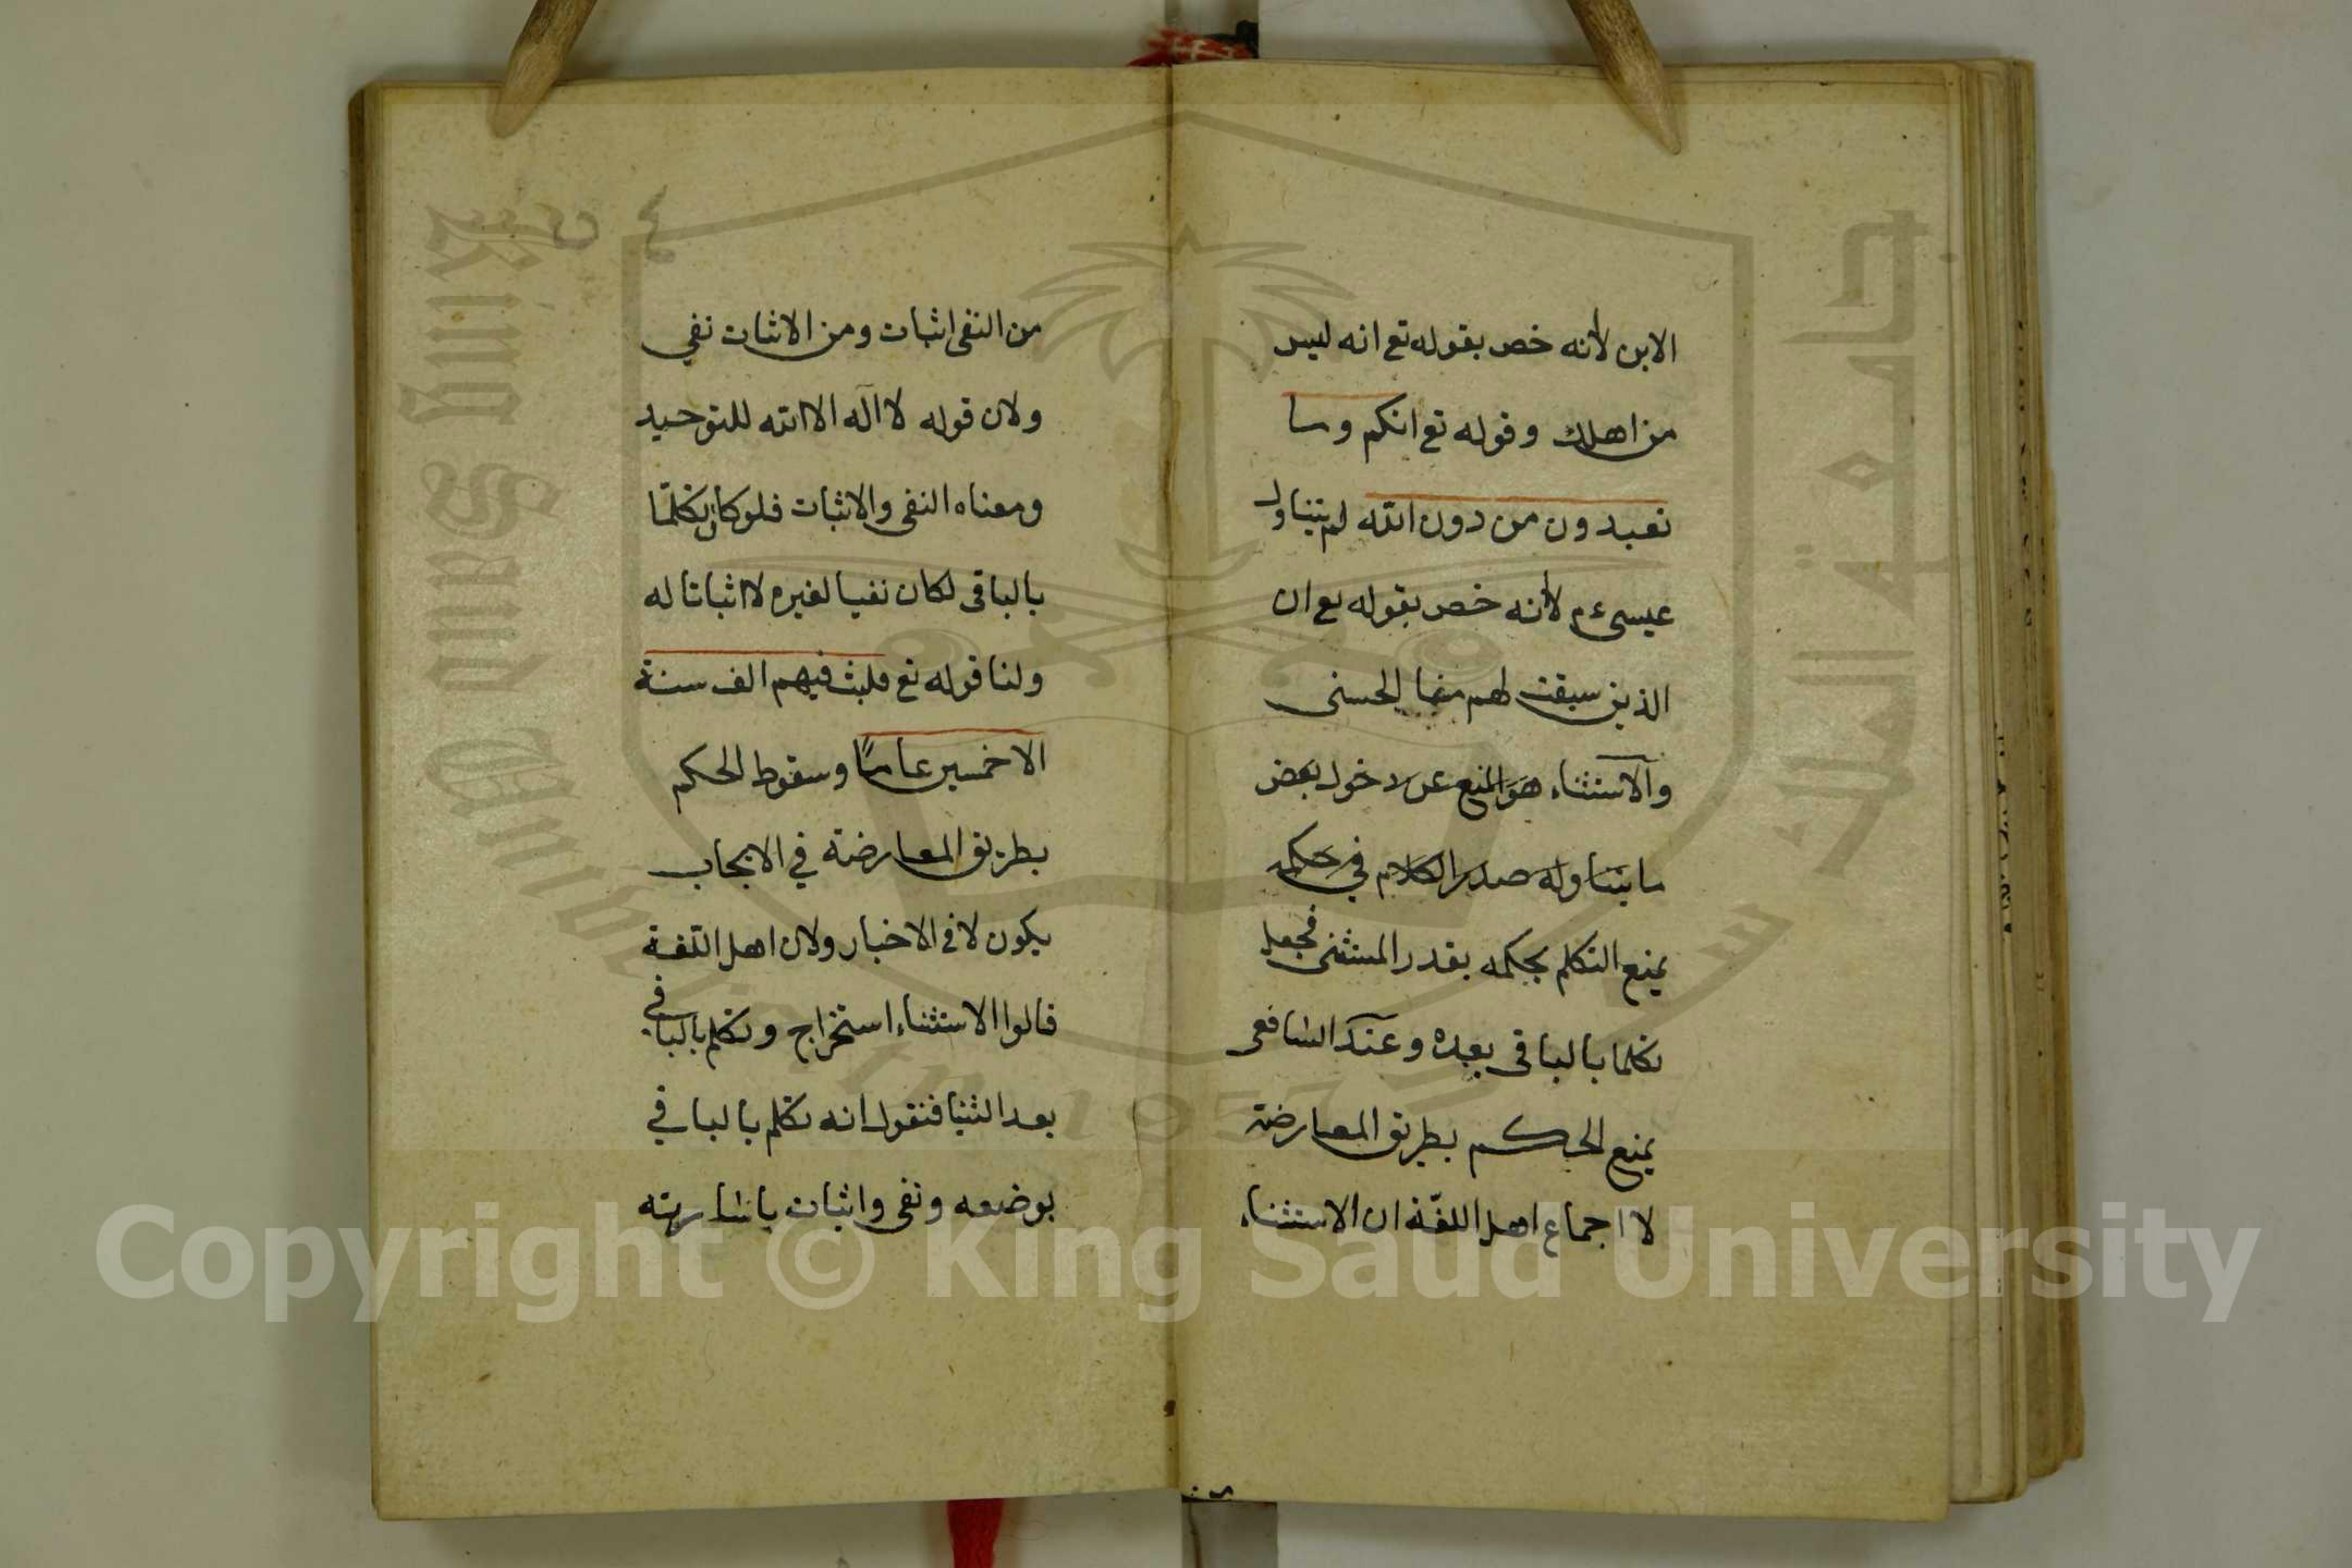 الابن لأنه خص بقوله تع انه ليس
من اهلك وقوله تع انكم وما
تعبدون من دون الله لم يتناول
عيسى ءم لأنه خص بقوله تع ان
الذين سبقت لهم منا الحسنى
والاستثناء هو المنع عن دخول بعض
ما يتناوله صدر الكلام في حكمه
يمنع التكلم بحكمه بقدر المستثنى فجعل
تكلما بالباقى بعده وعند الشافعى
يمنع الحكم بطريق المعارضة
لا اجماع اهل اللغة ان الاستثناء
من النفى اثبات ومن الاثبات نفي
ولان قوله لا اله الا الله للتوحيد
ومعناه النفى والاثبات فلو كان تكلمّا
بالباقى لكان نفيا لغيره لا اثباتا له
ولنا قوله تع فلبث فيهم الف سنة
الا خمسين عامًا وسقوط الحكم
بطريق المعارضة في الايجاب
يكون لا فى الاخبار ولان اهل اللغة
قالوا الاستثناء استخراج وتكلم بالباقي
بعد الثنيا فنقول انه تكلم بالباقي
بوضعه ونفى واثبات باشارته
جامعة الملك سعود
King Saud University
1957
Copyright © King Saud University